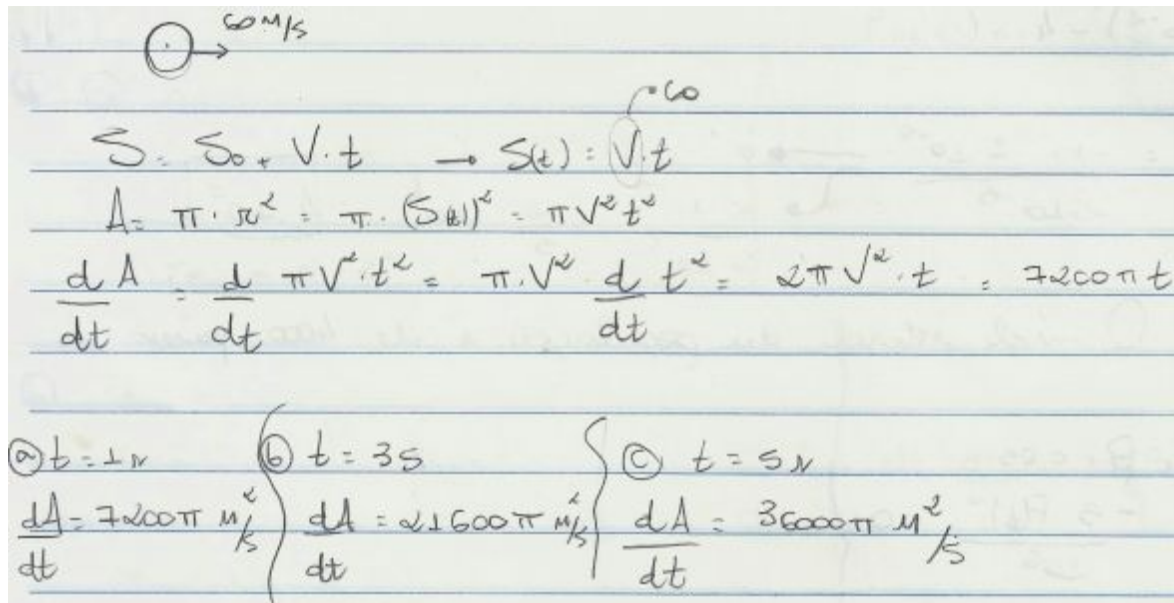 60 m/s
60
S = S₀ + V · t → S(t) = V · t
A = π · r² = π · (S(t))² = πV²t²
d/dt A = d/dt πV² · t² = π · V² d/dt t² = 2πV² · t = 7200πt
(a) t = 1s (b) t = 3s (c) t = 5s
dA/dt = 7200π m²/s dA/dt = 21600π m²/s dA/dt = 36000π m²/s